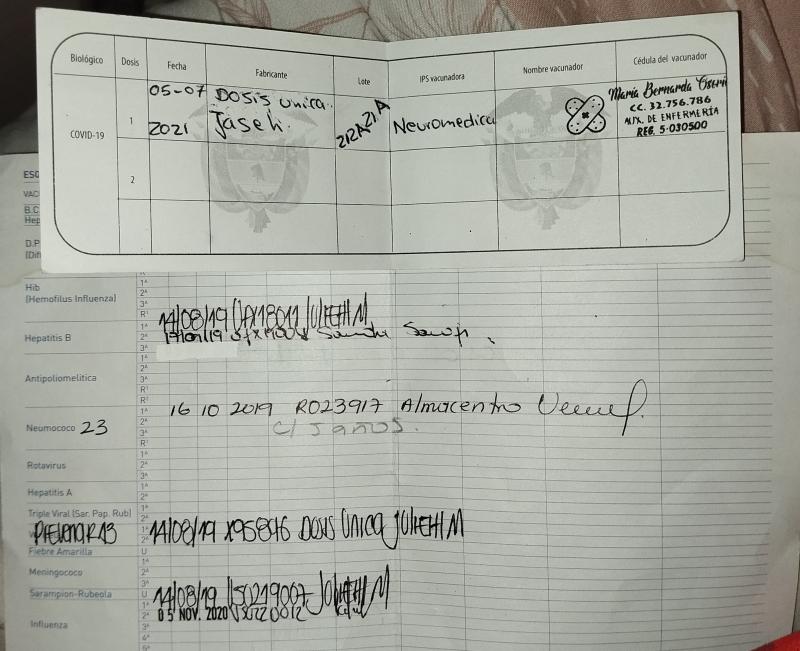 Biológico Dosis Fecha Fabricante Lote IPS vacunadora Nombre vacunador Cédula del vacunador
COVID-19
1 05-07 2021 Dosis unica Jaseh. 212A21A Neuromedica
María Bernarda
CC. 32.756.786
AUX. DE ENFERMERÍA
REG. 5-030500
2
ESQ
VAC
B.C.
Hep
D.P.
(Dif
Hib
(Hemofilus Influenza)
Hepatitis B
14/08/19 JULIETH M
Antipoliomelitica
Neumococo 23
16 10 2019 R023917 Almacentro
c/ 5 años.
Rotavirus
Hepatitis A
Triple Viral (Sar. Pap. Rub)
PREVENAR 13 14/08/19 X95846 DOSIS UNICA JULIETH M
Fiebre Amarilla
Meningococo
Sarampion-Rubeola
14/08/19 JULIETH M
Influenza
05 NOV. 2020